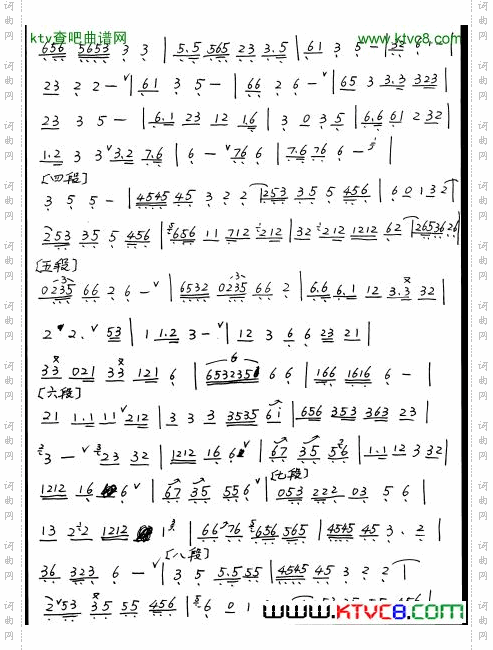 ktv查吧曲谱网 www.ktvc8.com
656 5653 3 3 | 5.5 565 23 3.5 | 61 3 5 - | 32 6 - |
23 2 2 - ∨ | 61 3 5 - | 66 2 6 - ∨ | 65 3 3.3 323 |
23 3 5 - | 6.1 23 12 1.6 | 3 0 3 5 | 6.6 61 2 32 |
1.2 3 3 ∨ 3.2 7.6 | 6 - ∨ 76 6 | 7.6 76 6 - |
[四段]
3 5 5 - | 4545 45 3 2 2 | 253 35 5 456 | 6 0 1 3 2 |
253 35 5 456 | 656 11 712 212 | 32 212 1212 62 | 2653626 |
[五段]
0235 66 2 6 - ∨ | 6532 0235 66 2 | 6.6 6.1 12 3.3 32 |
2 2. ∨ 53 | 1 1.2 3 - ∨ | 12 3 6 6 23 21 |
33 021 33 121 6 | 6532351 6 6 | 166 1616 6 - |
[六段]
21 1.1 11 ∨ 212 | 3 3 3 3535 61 | 656 353 363 23 |
3 - ∨ 23 32 | 1212 16 6 ∨ | 67 35 56 | 1.1 12 3 32 |
1212 16 6 ∨ | 67 35 556 ∨ | [七段] 053 222 03 5 6 |
13 2 2 1212 1 | 66 76 656 565 | 4545 45 3. 2 |
36 323 6 - ∨ | [八段] 3 5 5.5 55 | 4545 45 3 2 2 |
2 ∨ 53 35 55 456 | 6 0 1
www.KTVC8.COM
词曲网